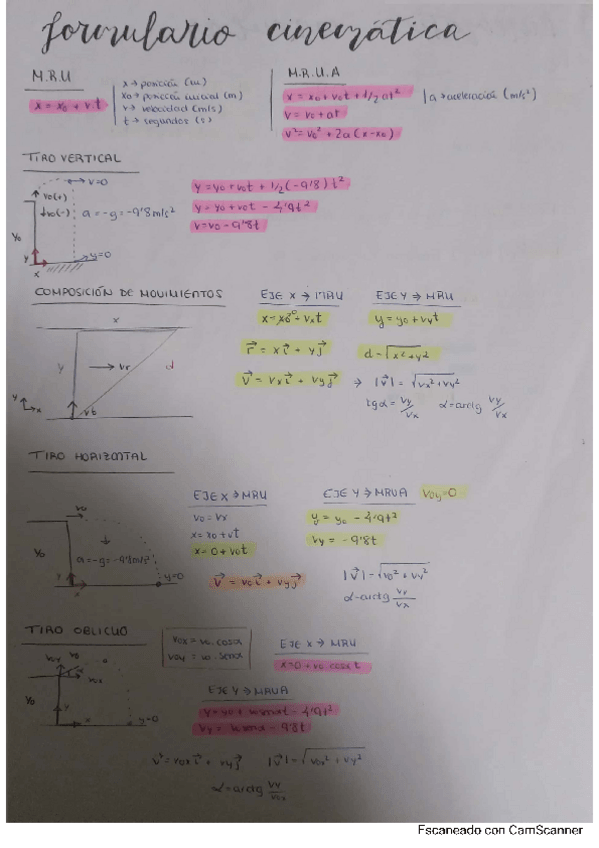 formulario cinemática
M.R.U
x = x₀ + vt
x → posición (m)
x₀ → posición inicial (m)
v → velocidad (m/s)
t → segundos (s)
M.R.U.A
x = x₀ + v₀t + 1/2 at²
v = v₀ + at
v² = v₀² + 2a (x - x₀)
a → aceleración (m/s²)
TIRO VERTICAL
→ v=0
v₀(+)
↓v₀(-)
a = -g = -9'8 m/s²
y₀
y
x
→ y=0
y = y₀ + v₀t + 1/2 (-9'8) t²
y = y₀ + v₀t - 4'9t²
v = v₀ - 9'8t
COMPOSICIÓN DE MOVIMIENTOS
x
y
→ vr
d
y
x
vt
EJE X → MRU
x = x₀⁰ + vₓt
r⃗ = xi⃗ + yj⃗
v⃗ = vₓi⃗ + vyj⃗
EJE Y → MRU
y = y₀ + vyt
d = √x² + y²
→ |v⃗| = √vx² + vy²
tgα = vy/vx
α = arctg vy/vx
TIRO HORIZONTAL
v₀
y₀
a = -g = -9'8m/s²
y=0
EJE X → MRU
v₀ = vx
x = x₀ + vt
x = 0 + v₀t
EJE Y → MRUA
v₀y = 0
y = y₀ - 4'9t²
vy = -9'8t
v⃗ = v₀i⃗ + vyj⃗
|v⃗| = √v₀² + vy²
α = arctg vy/vx
TIRO OBLICUO
v₀y
v₀
v₀x
y₀
y
x
y=0
v₀x = v₀ · cosα
v₀y = v₀ · senα
EJE X → MRU
x = 0 + v₀ cosα t
EJE Y → MRUA
y = y₀ + v₀ senα t - 4'9t²
vy = v₀ senα - 9'8t
v⃗ = v₀xi⃗ + vyj⃗
|v⃗| = √v₀x² + vy²
α = arctg vy/v₀x
Escaneado con CamScanner